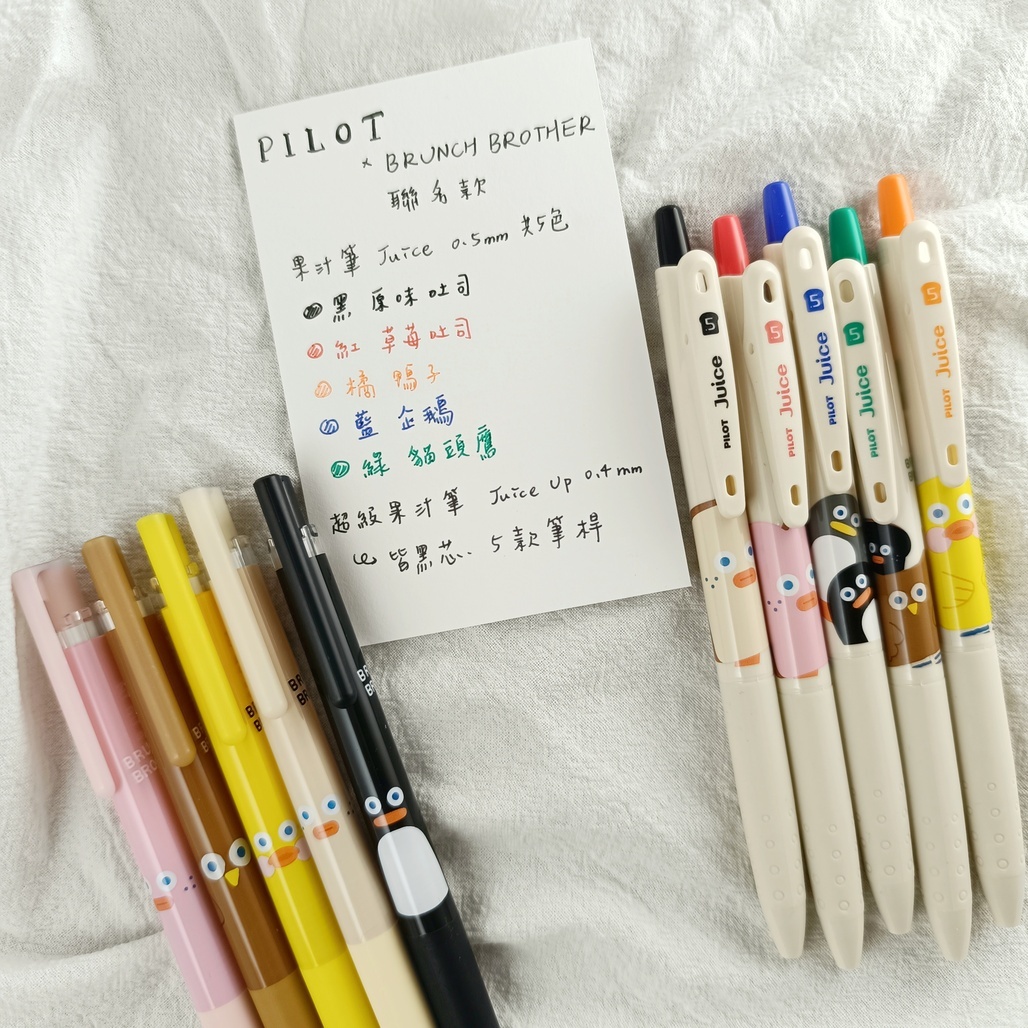 PILOT
× BRUNCH BROTHER
聯名款
果汁筆 Juice 0.5mm 共5色
黑 原味吐司
紅 草莓吐司
橘 鴨子
藍 企鵝
綠 貓頭鷹
超級果汁筆 Juice Up 0.4mm
皆黑芯、5款筆桿
5 Juice PILOT
5 Juice PILOT
5 Juice PILOT
5 Juice PILOT
5 Juice PILOT